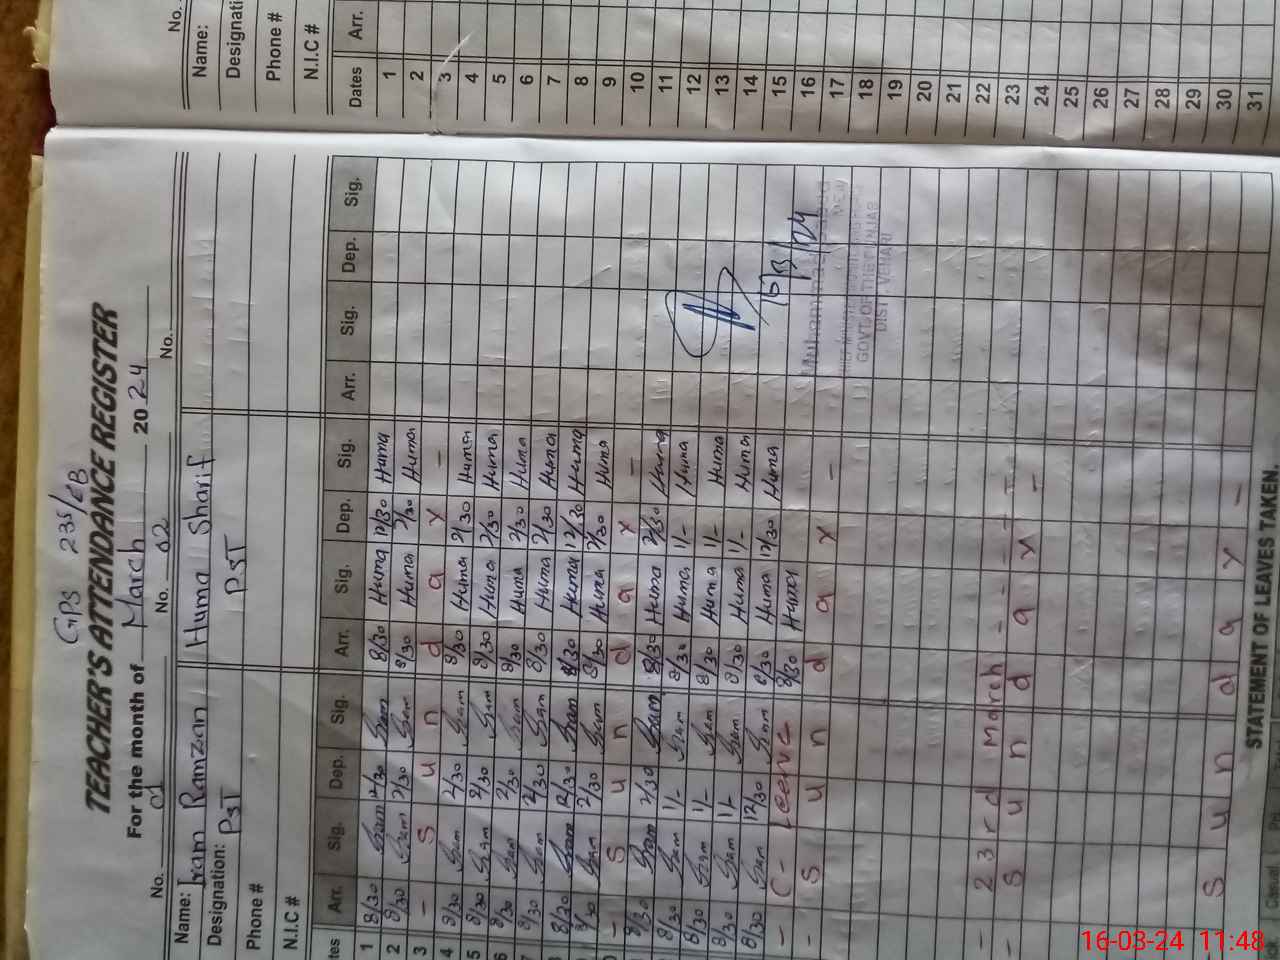 GPS 235/EB
TEACHER'S ATTENDANCE REGISTER
For the month of March 2024
No. 01 No. 02 No.
Name: Iram Ramzan Huma Sharif
Designation: PST PST
Phone #
N.I.C #
Arr. Sig. Dep. Sig. Arr. Sig. Dep. Sig. Arr. Sig. Dep. Sig.
1 8/30 2/30 8/30 Huma 12/30 Huma
2 8/30 2/30 8/30 Huma 2/30 Huma
3 - S u n d a y -
4 8/30 2/30 8/30 Huma 2/30 Huma
5 8/30 2/30 8/30 Huma 2/30 Huma
6 8/30 2/30 8/30 Huma 2/30 Huma
7 8/30 2/30 8/30 Huma 2/30 Huma
8 8/30 12/30 8/30 Huma 12/30 Huma
9 8/30 2/30 8/30 Huma 2/30 Huma
10 - S u n d a y -
11 8/30 2/30 8/30 Huma 2/30 Huma
12 8/30 1/- 8/30 Huma 1/- Huma
13 8/30 1/- 8/30 Huma 1/- Huma
14 8/30 1/- 8/30 Huma 1/- Huma
15 8/30 12/30 8/30 Huma 12/30 Huma
16 - C - Leave 8/30 Huma
17 - S u n d a y -
15/3/24
GOVT. OF THE PUNJAB
DISTT. VEHARI
18
19
20
21
22
23 - 23rd March - - - -
24 - S u n d a y -
25
26
27
28
29
30
31 S u n d a y -
STATEMENT OF LEAVES TAKEN.
No.
Name:
Phone #
N.I.C #
Dates Arr.
1
2
3
4
5
6
7
8
9
10
11
12
13
14
15
16
17
18
19
20
21
22
23
24
25
26
27
28
29
30
31
16-03-24 11:48